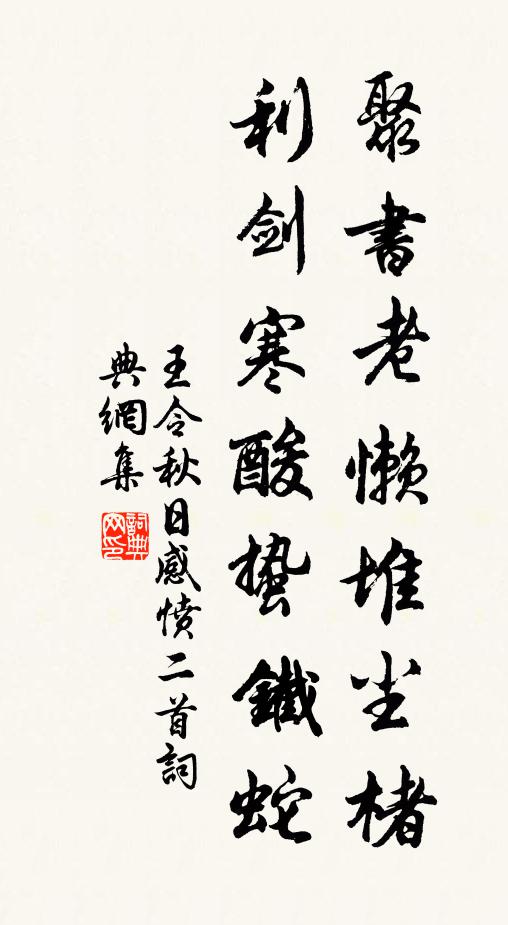 聚書老懶堆尘楮
利劍寒酸蟄鐵蛇
王令秋日感憤二首詞
典網集
詞典
网印